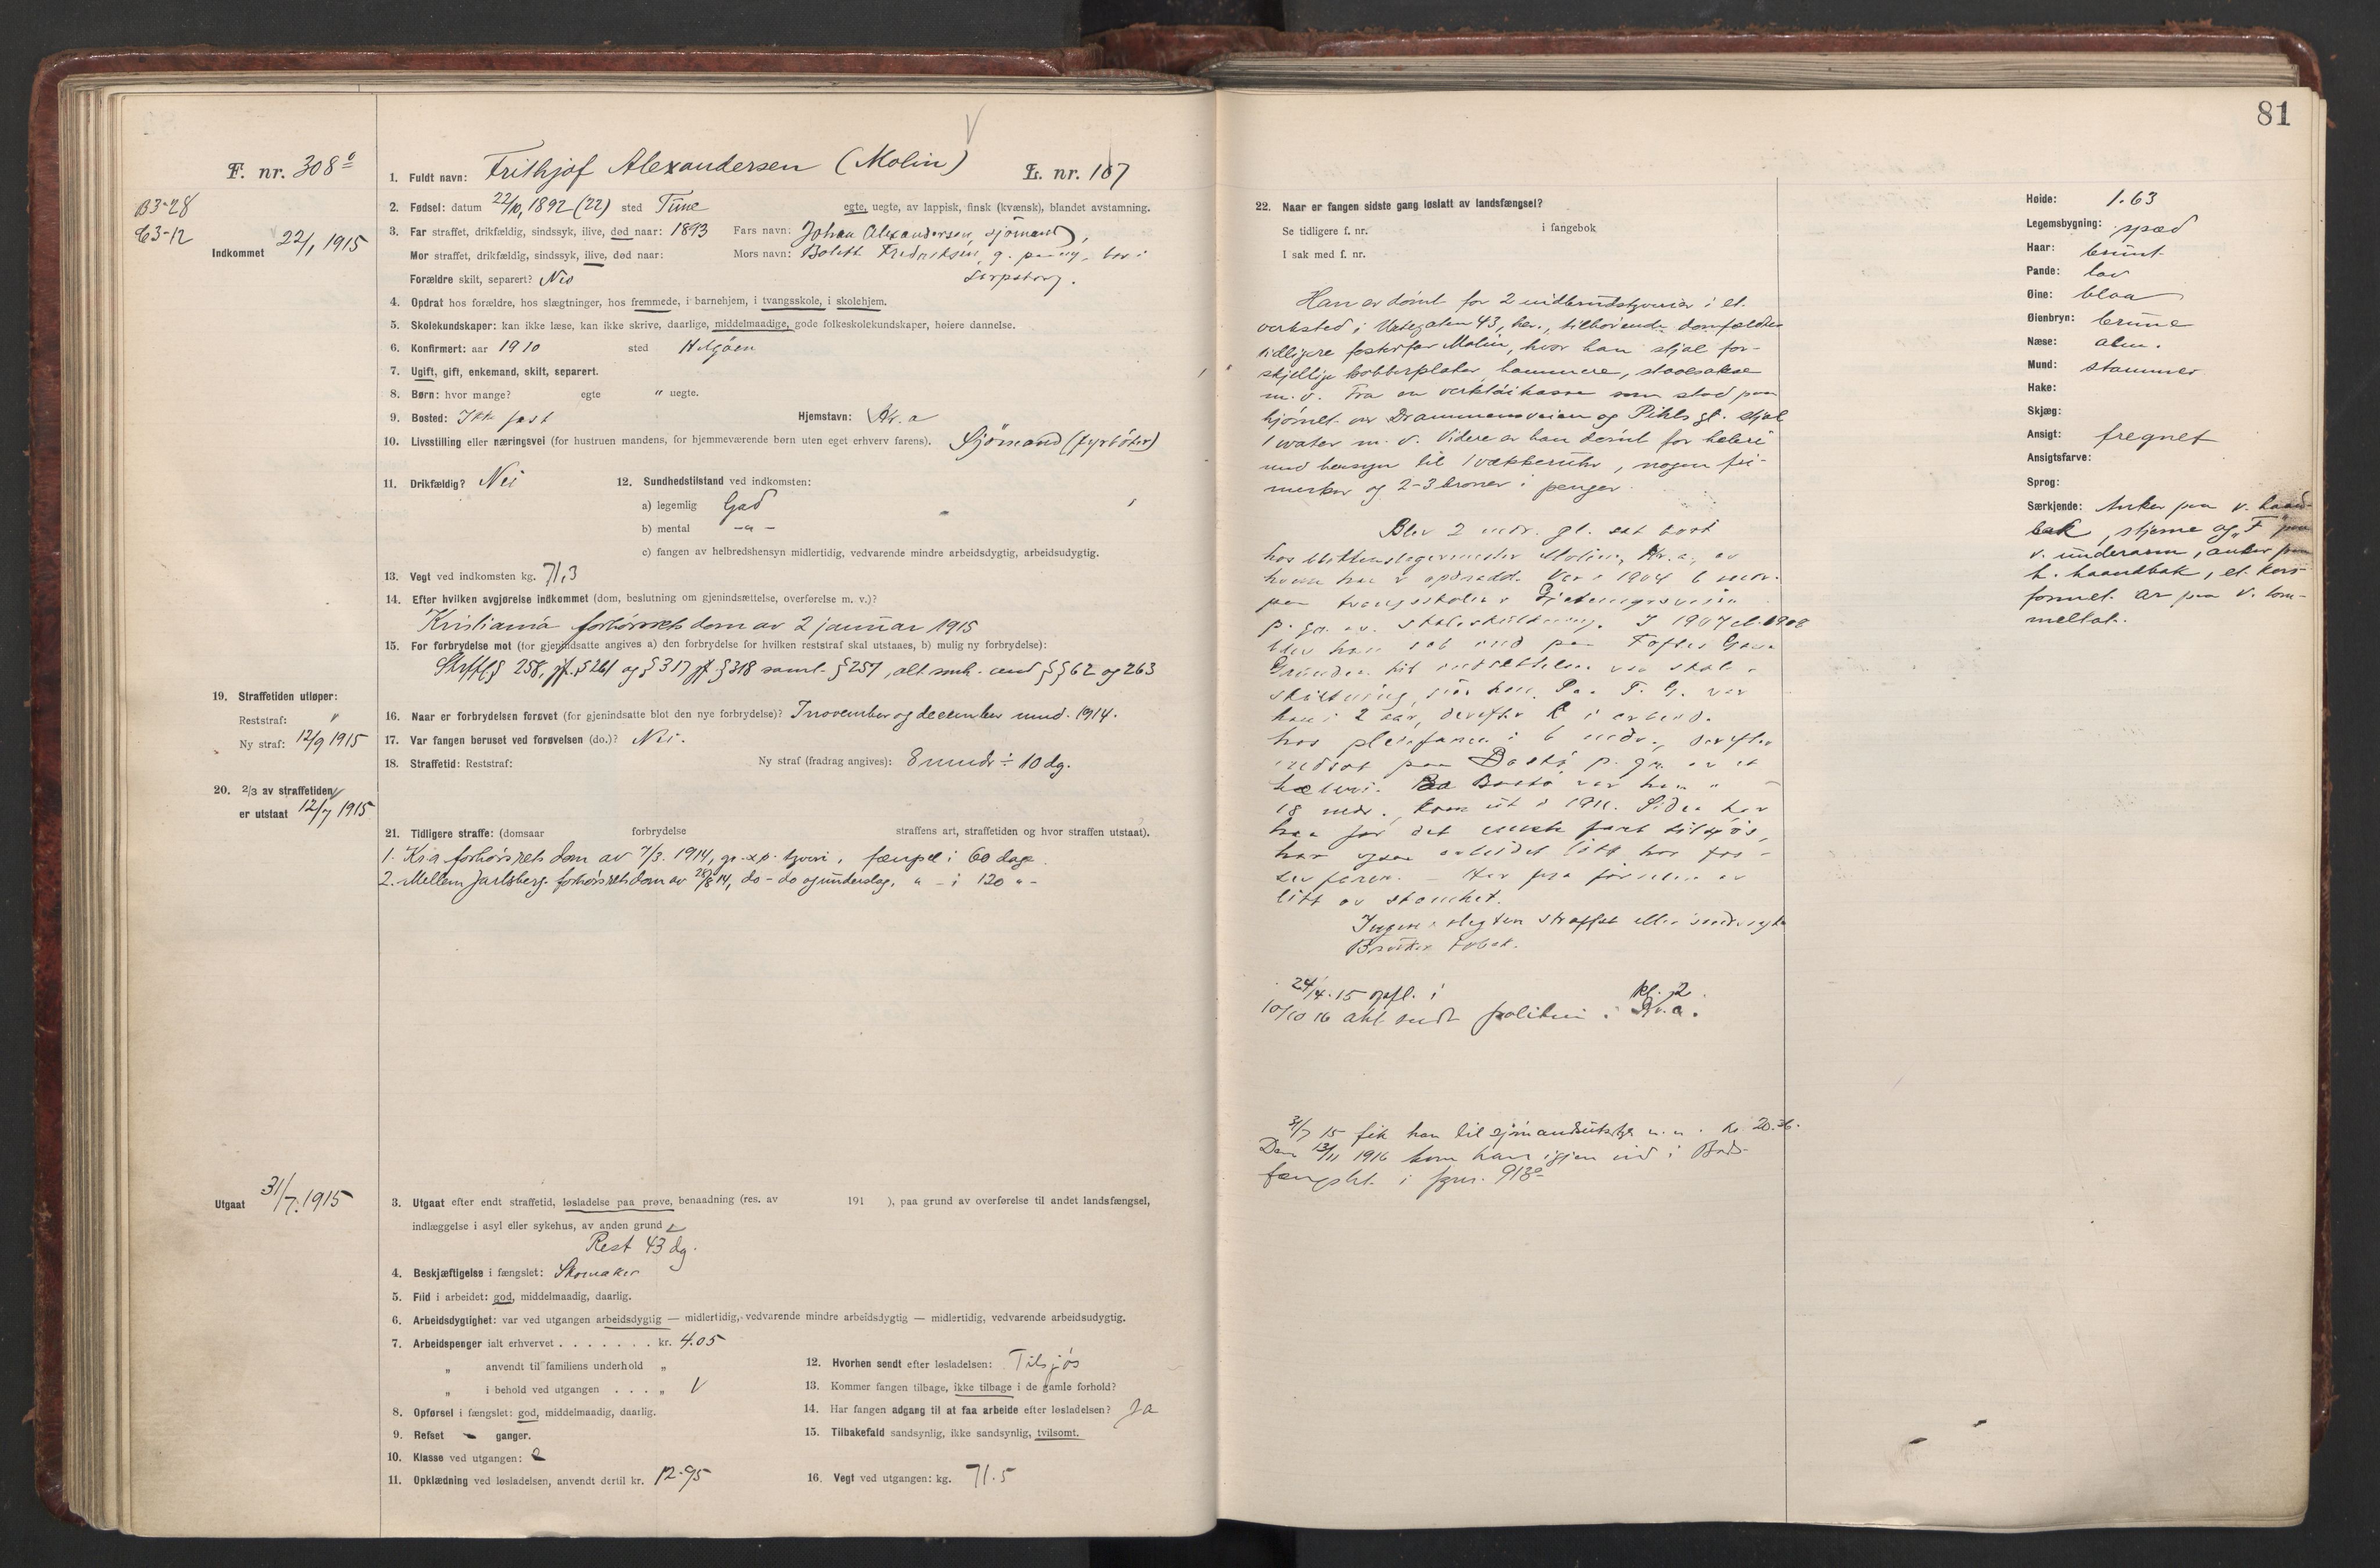 81
F. nr. 308°
B3-28
C3-12
Indkommet 22/1 1915
1. Fuldt navn: Frithjof Alexandersen (Molin) L. nr. 107
2. Fødsel: datum 22/10, 1892 (22) sted Tune egte, uegte, av lappisk, finsk (kvænsk), blandet avstamning.
3. Far straffet, drikfældig, sindssyk, ilive, død naar: 1893 Fars navn: Johan Alexandersen, sjömand,
Mor straffet, drikfældig, sindssyk, ilive, død naar: Mors navn: Bolett Fredriksen, g. bor i
Forældre skilt, separert? Nei Sarpsborg.
4. Opdrat hos forældre, hos slægtninger, hos fremmede, i barnehjem, i tvangsskole, i skolehjem.
5. Skolekundskaper: kan ikke læse, kan ikke skrive, daarlige, middelmaadige, gode folkeskolekundskaper, høiere dannelse.
6. Konfirmert: aar 1910 sted Helgöen
7. Ugift, gift, enkemand, skilt, separert.
8. Børn: hvor mange? egte " uegte.
9. Bosted: Ikke fast Hjemstavn: Kr.a
10. Livsstilling eller næringsvei (for hustruen mandens, for hjemmeværende børn uten eget erhverv farens). Sjömand (fyrböter)
11. Drikfældig? Nei 12. Sundhedstilstand ved indkomsten:
a) legemlig God
b) mental -"-
c) fangen av helbredshensyn midlertidig, vedvarende mindre arbeidsdygtig, arbeidsudygtig.
13. Vegt ved indkomsten kg. 71,3
14. Efter hvilken avgjørelse indkommet (dom, beslutning om gjenindsættelse, overførelse m. v.)?
Kristiania forhörsrets dom av 2 januar 1915
15. For forbrydelse mot (for gjenindsatte angives a) den forbrydelse for hvilken reststraf skal utstaaes, b) mulig ny forbrydelse):
Strfl. § 258, jf. § 261 og § 317 jf. § 318 samt § 257, alt smh. med §§ 62 og 263
19. Straffetiden utløper:
Reststraf: "
Ny straf: 12/9 1915
16. Naar er forbrydelsen forøvet (for gjenindsatte blot den nye forbrydelse)? I november og december mnd. 1914.
17. Var fangen beruset ved forøvelsen (do.)? Nei.
18. Straffetid: Reststraf: Ny straf (fradrag angives): 8 mndr ÷ 10 dg.
20. 2/3 av straffetiden
er utstaat 12/7 1915
21. Tidligere straffe: (domsaar forbrydelse straffens art, straffetiden og hvor straffen utstaat).
1. Kr.a forhörsrets dom av 7/3. 1914, gr. xp. tyveri, fængsel i 60 dage.
2. Mellem Jarlsberg forhörsrets dom av 28/8 14, do - do og underslag, " - i 120 " -
Utgaat 31/7. 1915
3. Utgaat efter endt straffetid, løsladelse paa prøve, benaadning (res. av 191 ), paa grund av overførelse til andet landsfængsel,
indlæggelse i asyl eller sykehus, av anden grund
Rest 43 dg.
4. Beskjæftigelse i fængslet: Skomaker
5. Flid i arbeidet: god, middelmaadig, daarlig.
6. Arbeidsdygtighet: var ved utgangen arbeidsdygtig — midlertidig, vedvarende mindre arbeidsdygtig — midlertidig, vedvarende arbeidsudygtig.
7. Arbeidspenger ialt erhvervet . . . . . . . kr. 4.05
" anvendt til familiens underhold "
" i behold ved utgangen . . . "
8. Opførsel i fængslet: god, middelmaadig, daarlig.
9. Refset - ganger.
10. Klasse ved utgangen: 2
11. Opklædning ved løsladelsen, anvendt dertil kr. 12.95
12. Hvorhen sendt efter løsladelsen: Tilsjös
13. Kommer fangen tilbage, ikke tilbage i de gamle forhold?
14. Har fangen adgang til at faa arbeide efter løsladelsen? Ja
15. Tilbakefald sandsynlig, ikke sandsynlig, tvilsomt.
16. Vegt ved utgangen: kg. 71.5
22. Naar er fangen sidste gang løslatt av landsfængsel?
Se tidligere f. nr. i fangebok
I sak med f. nr.
Han er dömt for 2 indbrudstyverier i et
verksted i Urtegaten 43, her., tilhörende domfældtes
tidligere fosterfar Molin, hvor han stjal for-
skjellige kobberplater, hammere, staalsakse
m. v. Fra en verktöikasse som stod paa
hjörnet av Drammensveien og Pihls gt. stjal
1 water m. v. Videre er han dömt for heleri
med hensyn til 1 vækkeruhr, nogen fri-
merker og 2-3 kroner i penger.
Blev 2 mdr. gl. sat bort
hos blikkenslagermester Molin, Kr.a, av
hvem han er opdradd. Var i 1904 6 mdr.
paa tvangsskolen i Gjetemyrsveien
p. gr. av skoleskulkning. I 1907 el. 1908
blev han sat ind paa Toftes Gave
Grunden til indsættelsen var skole-
skulkning, sier han. Paa T. G. var
han i 2 aar, derefter i arbeid
hos pleiefaren i 6 mdr., derefter
indsat paa Bastö p. gr. av et
heleri. Paa Bastö var han i
18 mdr., kom ut i 1911. Siden har
han for det meste fart tilsjös,
har ogsaa arbeidet litt hos fos-
terfaren. -
litt av stamhet.
Ingen i slegten straffet eller sindssyke
24/4. 15 opfl. i kl. 2.
10/10 16 politiet i Kr.a.
31/7 15 fik han til sjömandsutstyr m. m. kr. 20.36.
Den 13/11 1916 kom han igjen ind i Bods-
fængslet i fgnr. 913°
Høide: 1.63
Legemsbygning: spæd
Haar: brunt
Pande: lav
Øine: blaa
Øienbryn: brune
Næse: alm.
Mund: stammer
Hake:
Skjæg:
Ansigt: fregnet
Ansigtsfarve:
Sprog:
Særkjende: Anker paa v. haand-
bak, stjerne og "F" paa
v. underarm, anker paa
h. haandbak, et kors-
formet ar paa v. tom-
meltot.